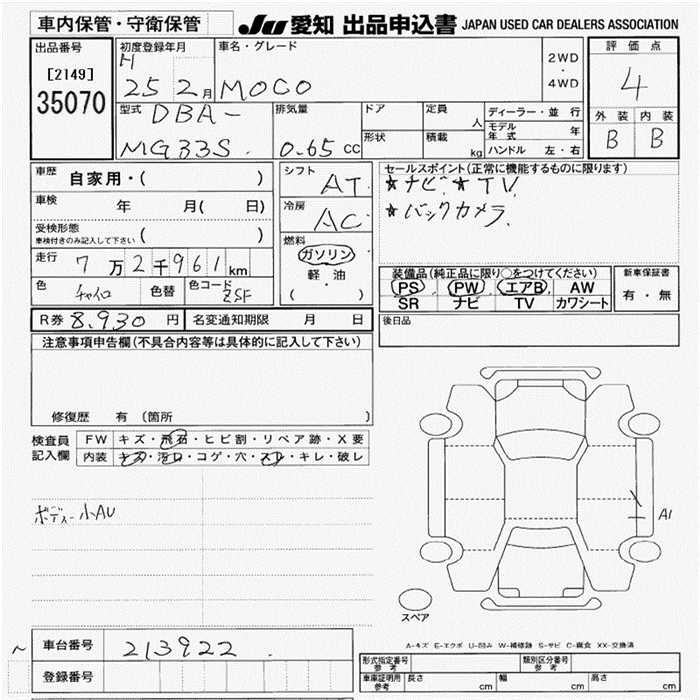 車内保管・守衛保管 JU 愛知 出品申込書 JAPAN USED CAR DEALERS ASSOCIATION
出品番号 初度登録年月 車名・グレード 2WD ・ 4WD 評価点
[2149] H 25 2月 MOCO 4
35070 型式 DBA- 排気量 ドア 定員 人 ディーラー・並行 外装 内装
MG33S 0.65 CC 形状 積載 kg モデル年式 年 B B
ハンドル 左・右
車歴 自家用・( ) シフト AT セールスポイント(正常に機能するものに限ります)
車検 年 月( 日) 冷房 AC ★ナビ ★TV
受検形態 ( ) ★バックカメラ
車検付きのみ記入して下さい
走行 7万2千961km 燃料 ガソリン
軽・油
( ・ )
色 チャイロ 色替 色コード ZSF
装備品(純正品に限り○をつけてください) 新車保証書
PS PW エアB AW 有・無
SR ナビ TV カワシート
R券 8,930 円 名変通知期限 月 日 後日品
注意事項申告欄(不具合内容等は具体的に記入して下さい)
修復歴 有(箇所 )
検査員 FW キズ・飛石・ヒビ割・リペア跡・X要
記入欄 内装 キズ・汚レ・コゲ・穴・スレ・キレ・破レ
ボディー小AU
A1
スペア
A-キズ E-エクボ U-凹み W-補修跡 S-サビ C-腐食 XX-交換済
~ 車台番号 213922
登録番号
形式指定番号 参考 類別区分番号 参考
車庫証明用 参考 長さ cm 幅 cm 高さ cm